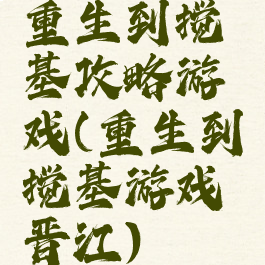 重生到搅
基攻略游
戏(重生到
搅基游戏
晋江)